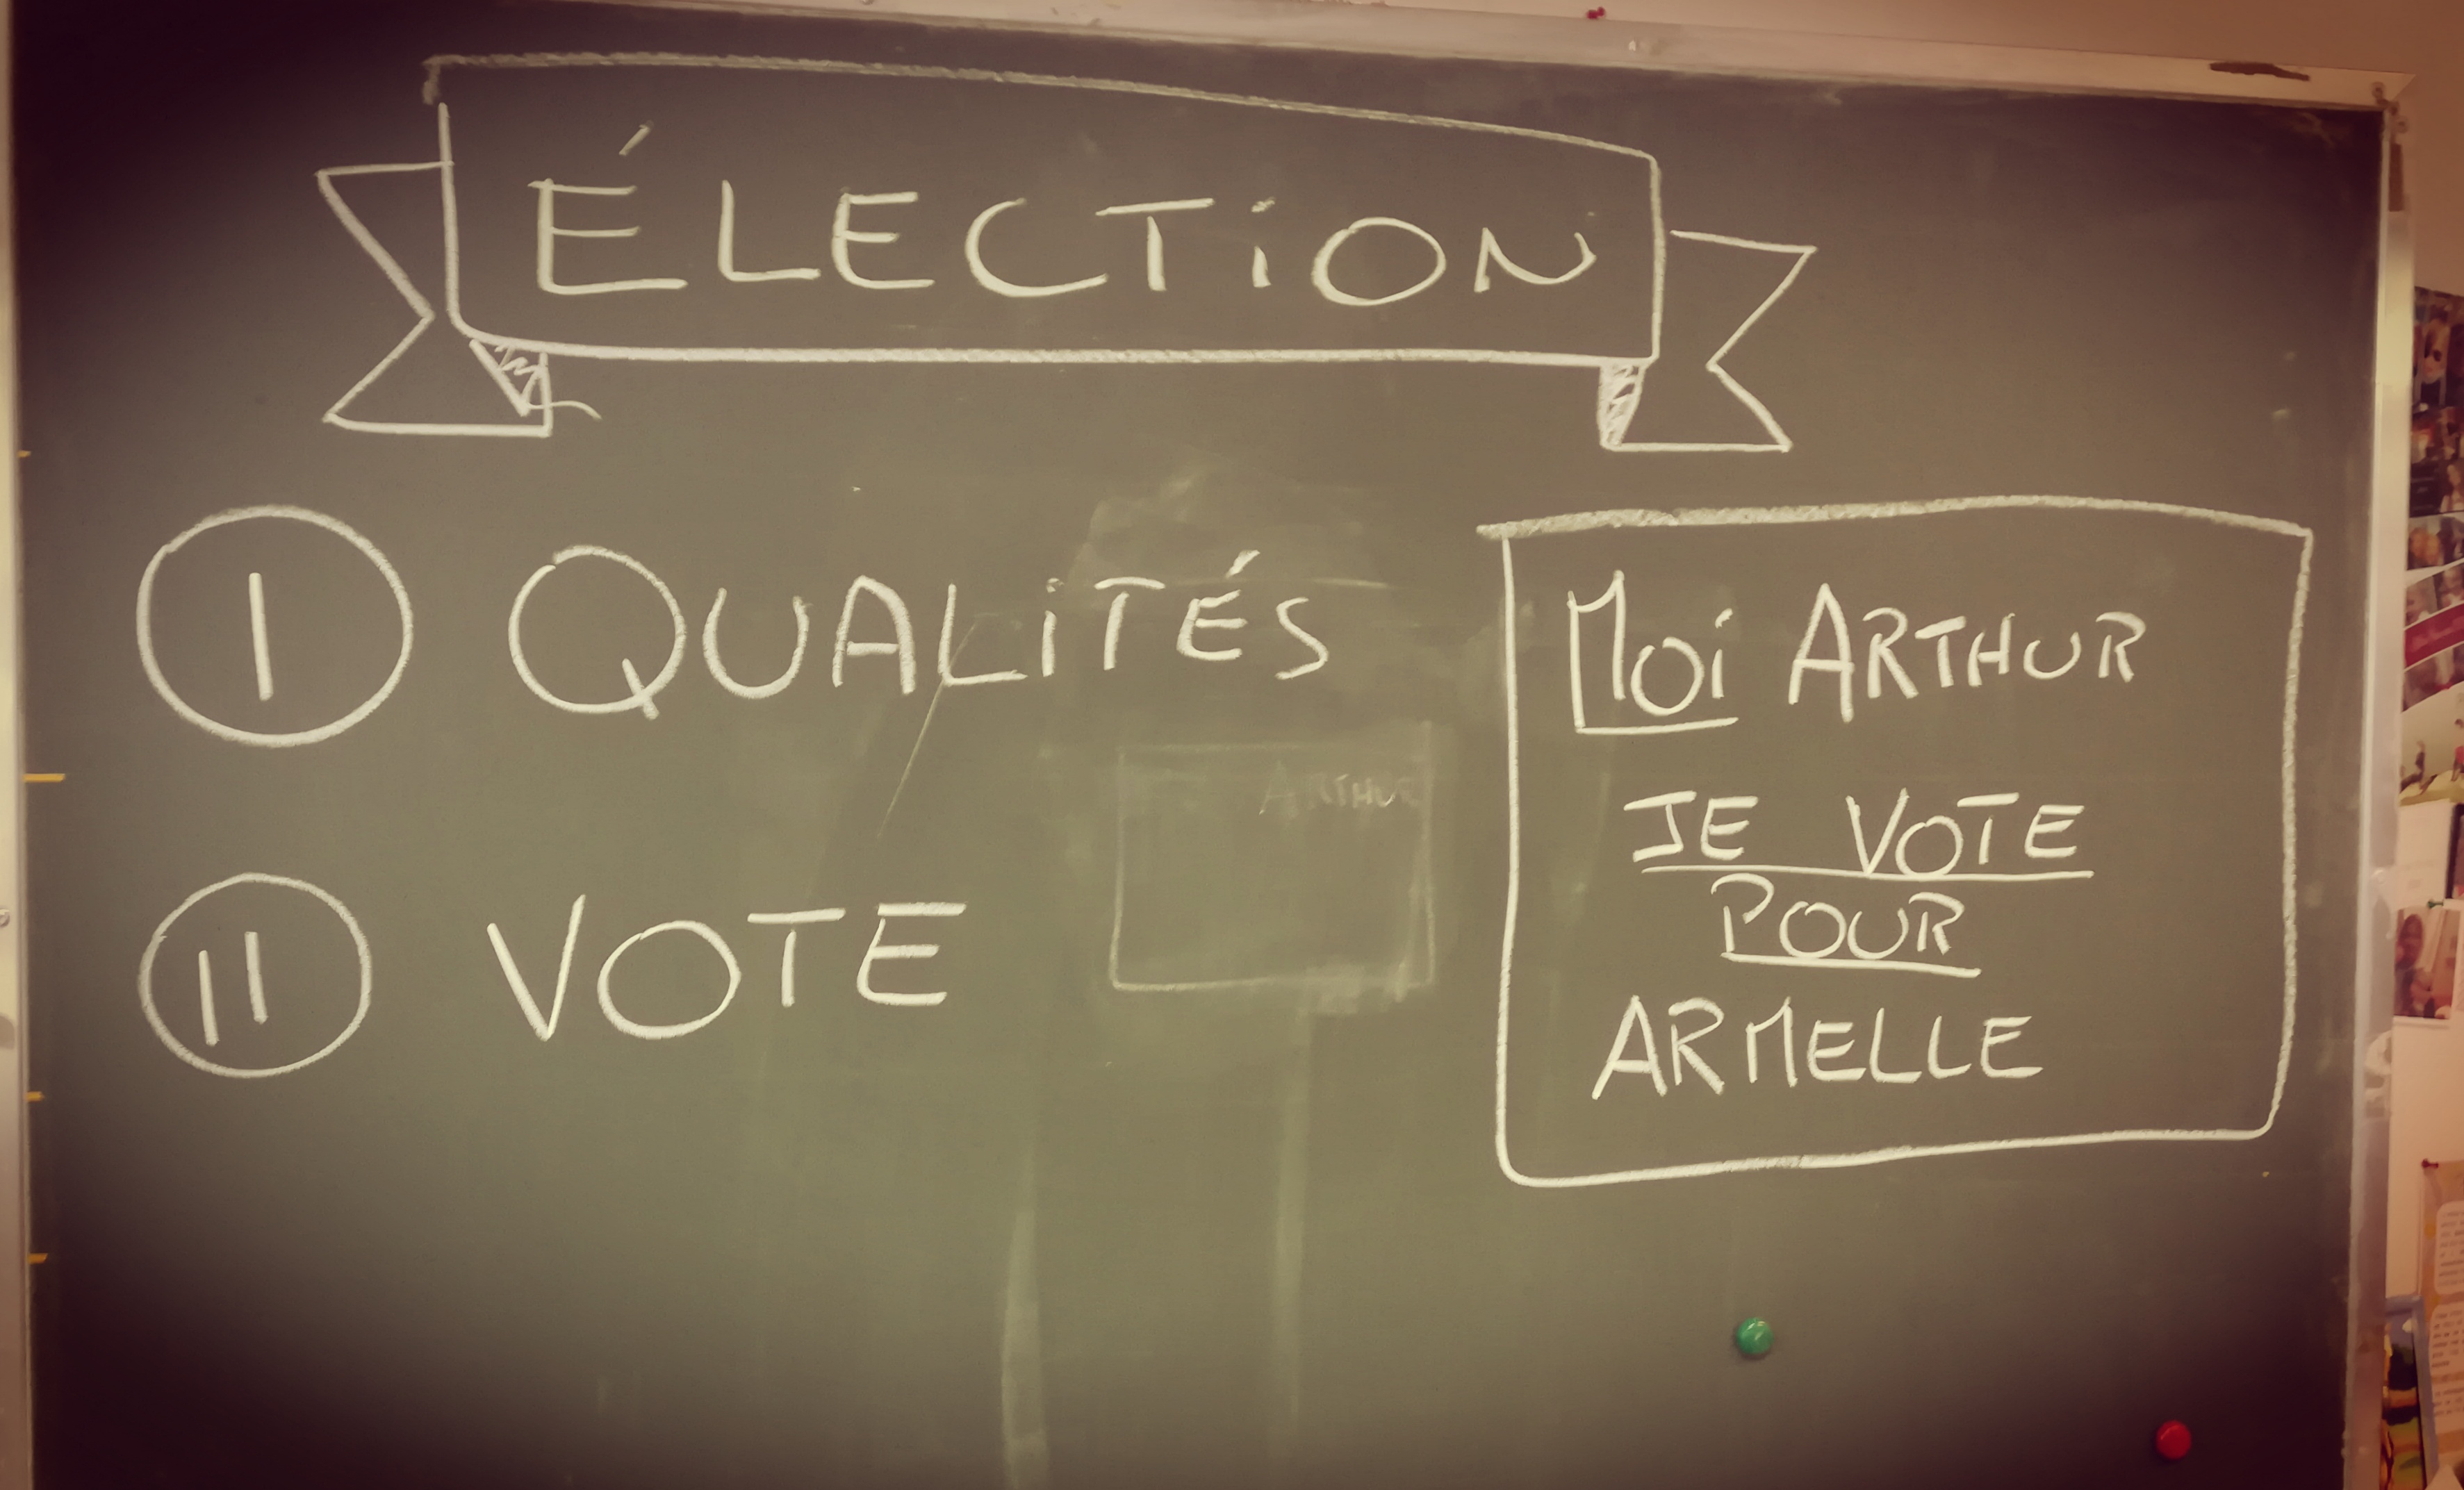 ÉLECTiON
I QUALiTÉS
II VOTE
ARTHUR
MOi ARTHUR
JE VOTE
POUR
ARMELLE